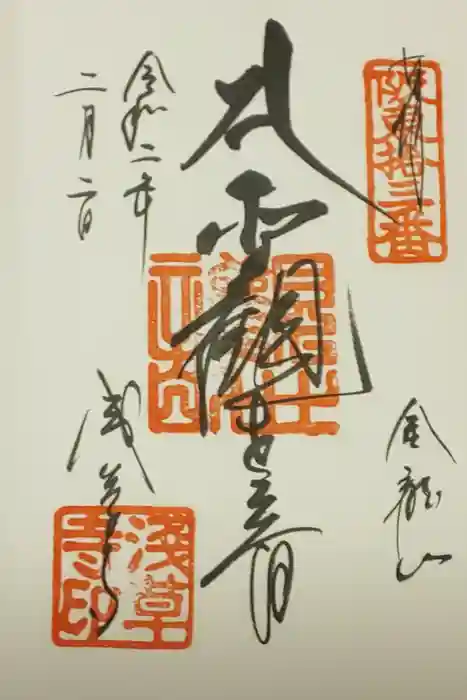 奉拝
坂東拾三番
金龍山
聖観世音
令和二年
二月二日
浅草寺
淺草寺印